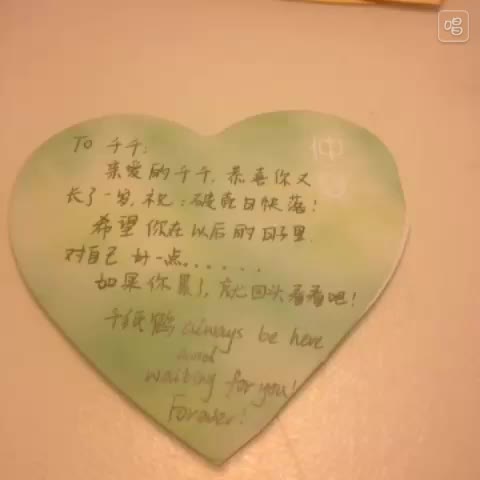 唱
仲
To 千千:
亲爱的千千,恭喜你又
长了一岁,祝:破壳日快落!
希望你在以后的日子里
对自己好一点......
如果你累了,就回头看看吧!
千纸鹤 always be here
and
waiting for you!
Forever!